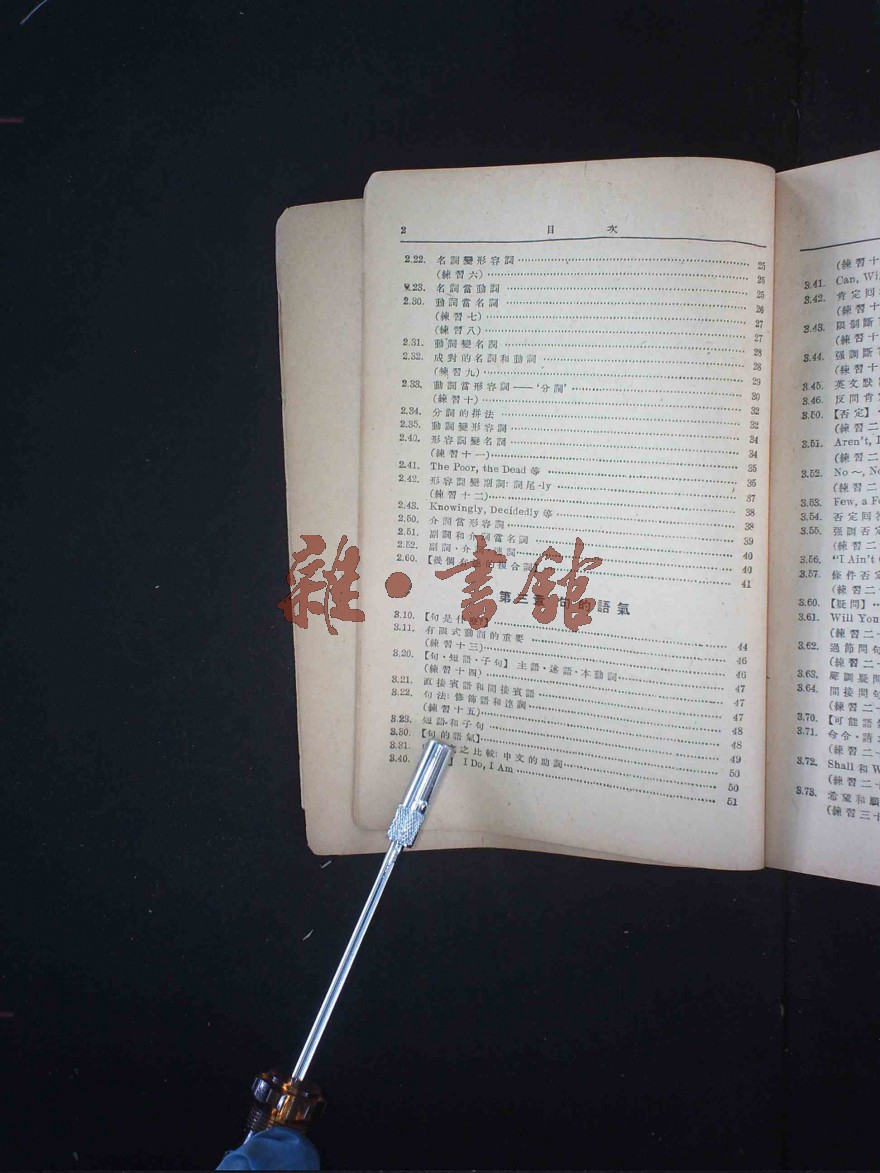 2 目 次
2.22. 名詞變形容詞 25
(練習六) 25
2.23. 名詞當動詞 25
2.30. 動詞當名詞 26
(練習七) 27
(練習八) 27
2.31. 動詞變名詞 28
2.32. 成對的名詞和動詞 28
(練習九) 29
2.33. 動詞當形容詞——‘分詞’ 30
(練習十) 32
2.34. 分詞的拼法 32
2.35. 動詞變形容詞 34
2.40. 形容詞變名詞 34
(練習十一) 35
2.41. The Poor, the Dead 等 35
2.42. 形容詞變副詞: 詞尾 -ly 37
(練習十二) 38
2.43. Knowingly, Decidedly 等 38
2.50. 介詞當形容詞 39
2.51. 副詞和介詞當名詞 40
2.52. 副詞·介詞·連詞 40
2.60. 【幾個有 的複合詞】 41
第三章 句的語氣
3.10. 【句是什 】 44
3.11. 有限式動詞的重要 46
(練習十三) 46
3.20. 【句·短語·子句】 主語·述語·本動詞 47
(練習十四) 47
3.21. 直接賓語和間接賓語 47
3.22. 句法: 修飾語和連詞 48
(練習十五) 48
3.23. 短語和子句 49
3.30. 【句的語氣】 50
3.31. 之比較: 中文的助詞 50
3.40. 】 I Do, I Am 51
雜·書館
(練習十
3.41. Can, Wi
3.42. 肯定回
(練習十
3.43. 限制斷
(練習十
3.44. 强調斷
(練習十
3.45. 英文默
3.46. 反問肯
3.50. 【否定】
(練習二
3.51. Aren't, I
(練習二
3.52. No ~, No
(練習二
3.53. Few, a Fe
3.54. 否定回答
3.55. 强調否定
(練習二
3.56. "I Ain't
3.57. 條件否定
(練習二
3.60. 【疑問】
3.61. Will You
(練習二
3.62. 過節問句
(練習二
3.63. 疑問
3.64. 間接問句
(練習二
3.70. 【可能語氣
3.71. 命令·請
(練習二
3.72. Shall 和 W
(練習二
3.73. 希望和願
(練習三